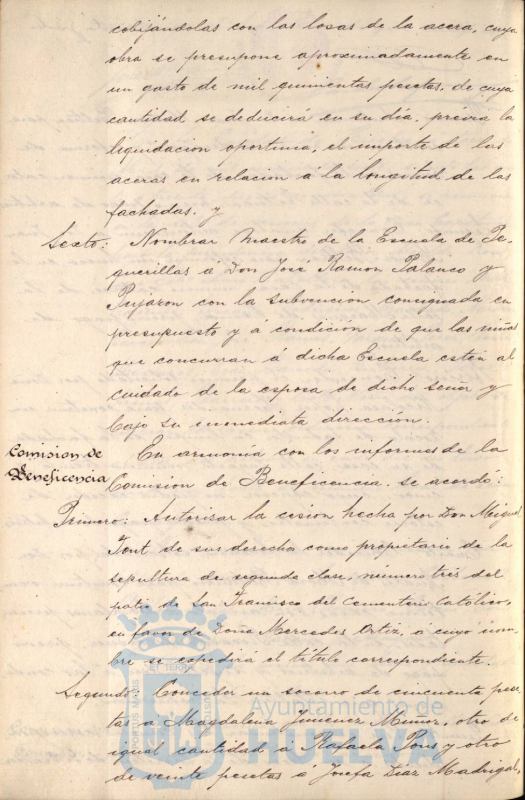 cobijándolas con las losas de la acera, cuya
obra se presupone aproximadamente en
un gasto de mil quinientas pesetas, de cuya
cantidad se deducirá en su día, previa la
liquidacion oportuna, el importe de las
aceras en relacion á la longitud de las
fachadas. y
Sexto: Nombrar Maestro de la Escuela de Pe-
guerillas á Don José Ramon Palanco y
Pujaron con la subvencion consignada en
presupuesto y á condición de que las niñas
que concurran á dicha Escuela esten al
cuidado de la esposa de dicho señor y
bajo su inmediata dirección.
Comision de
Beneficencia
En armonía con los informes de la
Comision de Beneficencia se acordó:
Primero: Autorizar la cesion hecha por Don Miguel
Font de sus derechos como propietario de la
sepultura de segunda clase, número tres del
patio de San Francisco del Cementerio Católico,
en favor de Doña Mercedes Ortiz, á cuyo nom-
bre se expedirá el título correspondiente.
Segundo: Conceder un socorro de cincuenta pese-
tas á Magdalena Jimenez Muñoz, otro de
igual cantidad á Rafaela Pons y otro
de veinte pesetas á Josefa Diaz Madrigal,
Ayuntamiento de
HUELVA